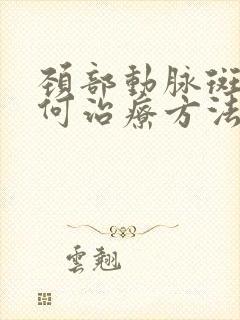 頚部動脉斑
何治療方法
雲翹